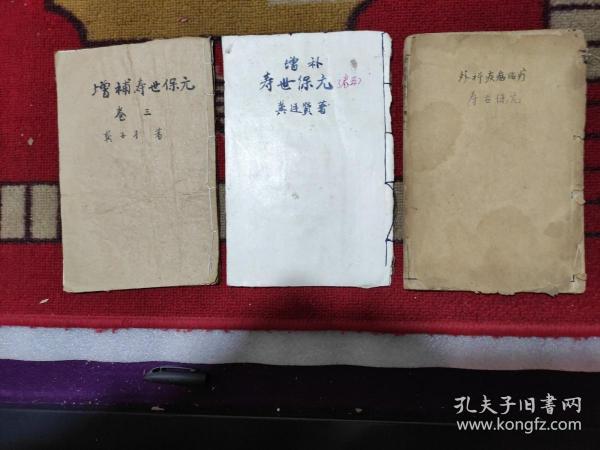 增補寿世保元
卷三
龚子才著
增补
寿世保元
龚廷贤著
外科疾病治疗
寿世保元
孔夫子旧书网
www.kongfz.com